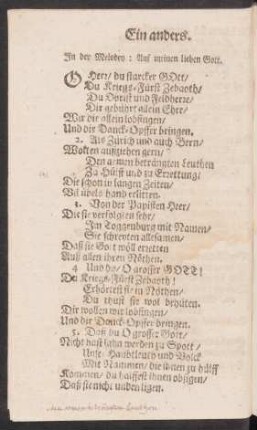 Ein anders.
In der Melodey: Auf meinen lieben Gott.
O Herr/ du starcker GOtt/
Du Kriegs-Fürst Zebaoth/
Du Obrist und Feldherr/
Dir gebührt allein Ehre/
Wir dir allein lobsingen/
Und dir Danck-Opffer bringen.
2. Als Zürich und auch Bern/
Wolten ausziehen gern/
Den armen beträngten Leuthen
Zu Hülff und zu Erettung/
Die schon in langen Zeiten/
Vil übels hand erlitten.
3. Von der Papisten Heer/
Die sie verfolgten sehr/
Im Toggenburg mit Namen/
Sie schreyten allesamen/
Daß sie Gott wöll eretten
Auß allen ihren Nöthen.
4 Und du/ O grosser GOTT!
Du Kriegs-Fürst Zebaoth!
Erhörtest sie/ in Nöthen/
Du thust sie wol behüten.
Dir wollen wir lobsingen/
Und dir Danck-Opffer bringen.
5. Daß du O grosser Gott/
Nicht hast lahn werden zu Spott/
Unsr Haubtleuth und Volck
Mit Nammen/ die ihnen zu hülff
Kommen/ du halffest ihnen obsigen/
Daß sie nicht underligen.